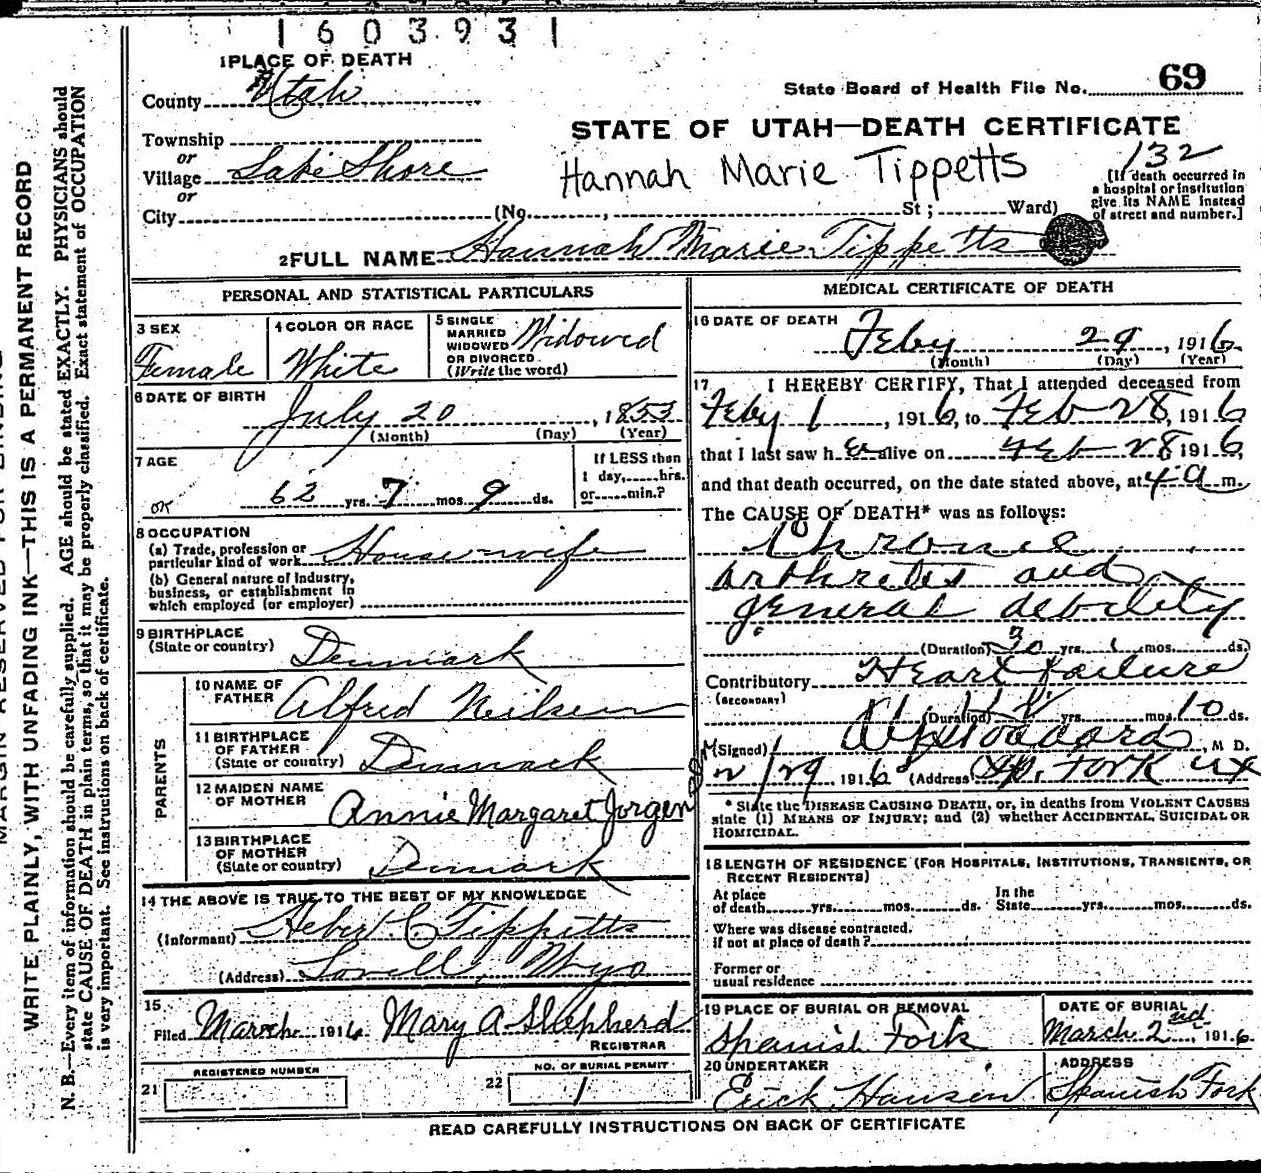 1603931
1 PLACE OF DEATH
County Utah
State Board of Health File No. 69
Township
or
Village Lake Shore
or
City (No. , St; Ward)
STATE OF UTAH—DEATH CERTIFICATE
Hannah Marie Tippetts
132
[If death occurred in
a hospital or institution
give its NAME instead
of street and number.]
2 FULL NAME Hannah Marie Tippetts
PERSONAL AND STATISTICAL PARTICULARS
3 SEX
Female
4 COLOR OR RACE
White
5 SINGLE
MARRIED
WIDOWED
OR DIVORCED
(Write the word)
Widowed
6 DATE OF BIRTH
July 20, 1853
(Month) (Day) (Year)
7 AGE
62 yrs. 7 mos. 9 ds.
If LESS than
1 day, hrs.
or min.?
OK
8 OCCUPATION
(a) Trade, profession or
particular kind of work House-wife
(b) General nature of Industry,
business, or establishment in
which employed (or employer)
9 BIRTHPLACE
(State or country) Denmark
PARENTS
10 NAME OF
FATHER Alfred Neilsen
11 BIRTHPLACE
OF FATHER
(State or country) Denmark
12 MAIDEN NAME
OF MOTHER Annie Margaret Jorgensen
13 BIRTHPLACE
OF MOTHER
(State or country) Dnmark
14 THE ABOVE IS TRUE TO THE BEST OF MY KNOWLEDGE
(Informant) Heber C Tippitts
(Address) Lovell, Wyo
15
Filed March 1916 Mary A Shepherd
REGISTRAR
21 REGISTERED NUMBER
22 NO. OF BURIAL PERMIT
1
MEDICAL CERTIFICATE OF DEATH
16 DATE OF DEATH
Feby 29, 1916
(Month) (Day) (Year)
17 I HEREBY CERTIFY, That I attended deceased from
Feby 1, 1916, to Feb 28, 1916
that I last saw her alive on Feb 28 1916,
and that death occurred, on the date stated above, at 4 a m.
The CAUSE OF DEATH* was as follows:
Chronic
arthretis and
general debility
(Duration) 20 yrs. mos. ds.
Contributory Heart failure
(SECONDARY)
(Duration) yrs. mos. 10 ds.
(Signed) Stoddard, M D.
2/29 1916 (Address) Sp. Fork
* State the DISEASE CAUSING DEATH, or, in deaths from VIOLENT CAUSES
state (1) MEANS OF INJURY; and (2) whether ACCIDENTAL, SUICIDAL OR
HOMICIDAL.
18 LENGTH OF RESIDENCE (FOR HOSPITALS, INSTITUTIONS, TRANSIENTS, OR
RECENT RESIDENTS)
At place
of death yrs. mos. ds.
In the
State yrs. mos. ds.
Where was disease contracted.
if not at place of death?
Former or
usual residence
19 PLACE OF BURIAL OR REMOVAL
Spanish Fork
DATE OF BURIAL
March 2nd, 1916.
20 UNDERTAKER
Erick Hansen
ADDRESS
Spanish Fork
READ CAREFULLY INSTRUCTIONS ON BACK OF CERTIFICATE
WRITE PLAINLY, WITH UNFADING INK—THIS IS A PERMANENT RECORD
N. B.—Every item of information should be carefully supplied. AGE should be stated EXACTLY. PHYSICIANS should
state CAUSE OF DEATH in plain terms, so that it may be properly classified. Exact statement of OCCUPATION
is very important. See instructions on back of certificate.